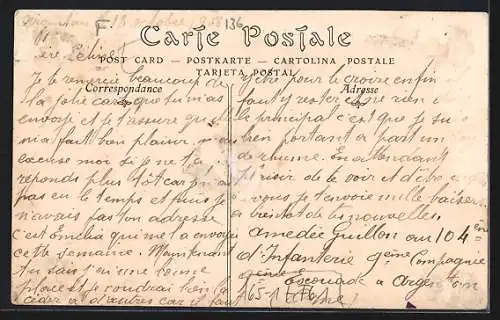 Argentan 13 octobre 1908
136
F
Carte Postale
POST CARD — POSTKARTE — CARTOLINA POSTALE
TARJETA POSTAL
Correspondance
Adresse
Je te remercie beaucoup de
la jolie carte que tu m'as
envoyé et je t'assure qu'elle
m'a fait bien plaisir
excuse moi si je ne t'ai
réponds plus tôt car je n'ai
pas eu le temps et puis je
n'avais pas ton adresse
c'est Emilia qui me l'a envoyé
cette semaine. Maintenant
tu sais j'ai une bonne
place et je voudrai bien la
céder à d'autres car il faut
y être pour le croire enfin il
faut y rester et ne rien
le principal c'est que je suis
bien portant à part un
de rhume. En attendant
plaisir de te voir et d'être
vous je t'envoie mille baisers
a bientot de tes nouvelles
Amedée Guillon au 104 eme
d'Infanterie 9eme Compagnie
9eme Escouade a Argentan
Orne